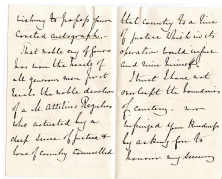 wishing to possess your
Coveted autograph.
That noble cry of yours
has won the hearts of
all generous men. Just
the noble devotion
of a M. Attilius Regulus
who actuated by a
deep sense of justice &
love of country counselled
that country to a line
of justice which its
operation would
and ruin himself.
I trust I have not
overleapt the boundaries
of courtesy nor
infringed your kindness
by asking you to
honour my